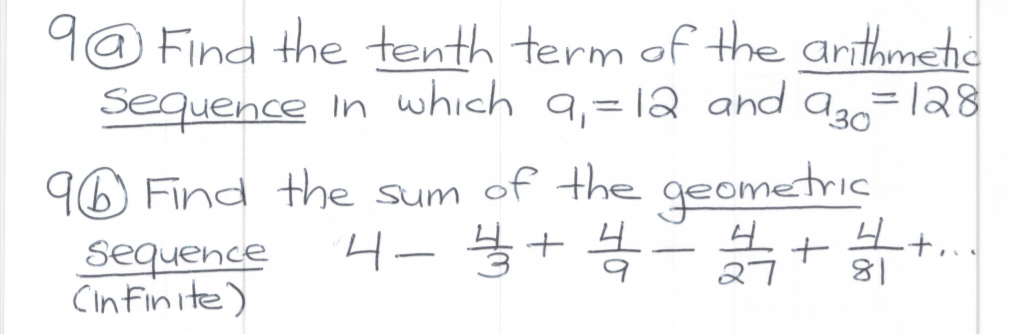 9ⓐ Find the tenth term of the arithmetic
sequence in which a₁ = 12 and a₃₀ = 128
9ⓑ Find the sum of the geometric
sequence 4 - 4/3 + 4/9 - 4/27 + 4/81 + ...
(infinite)